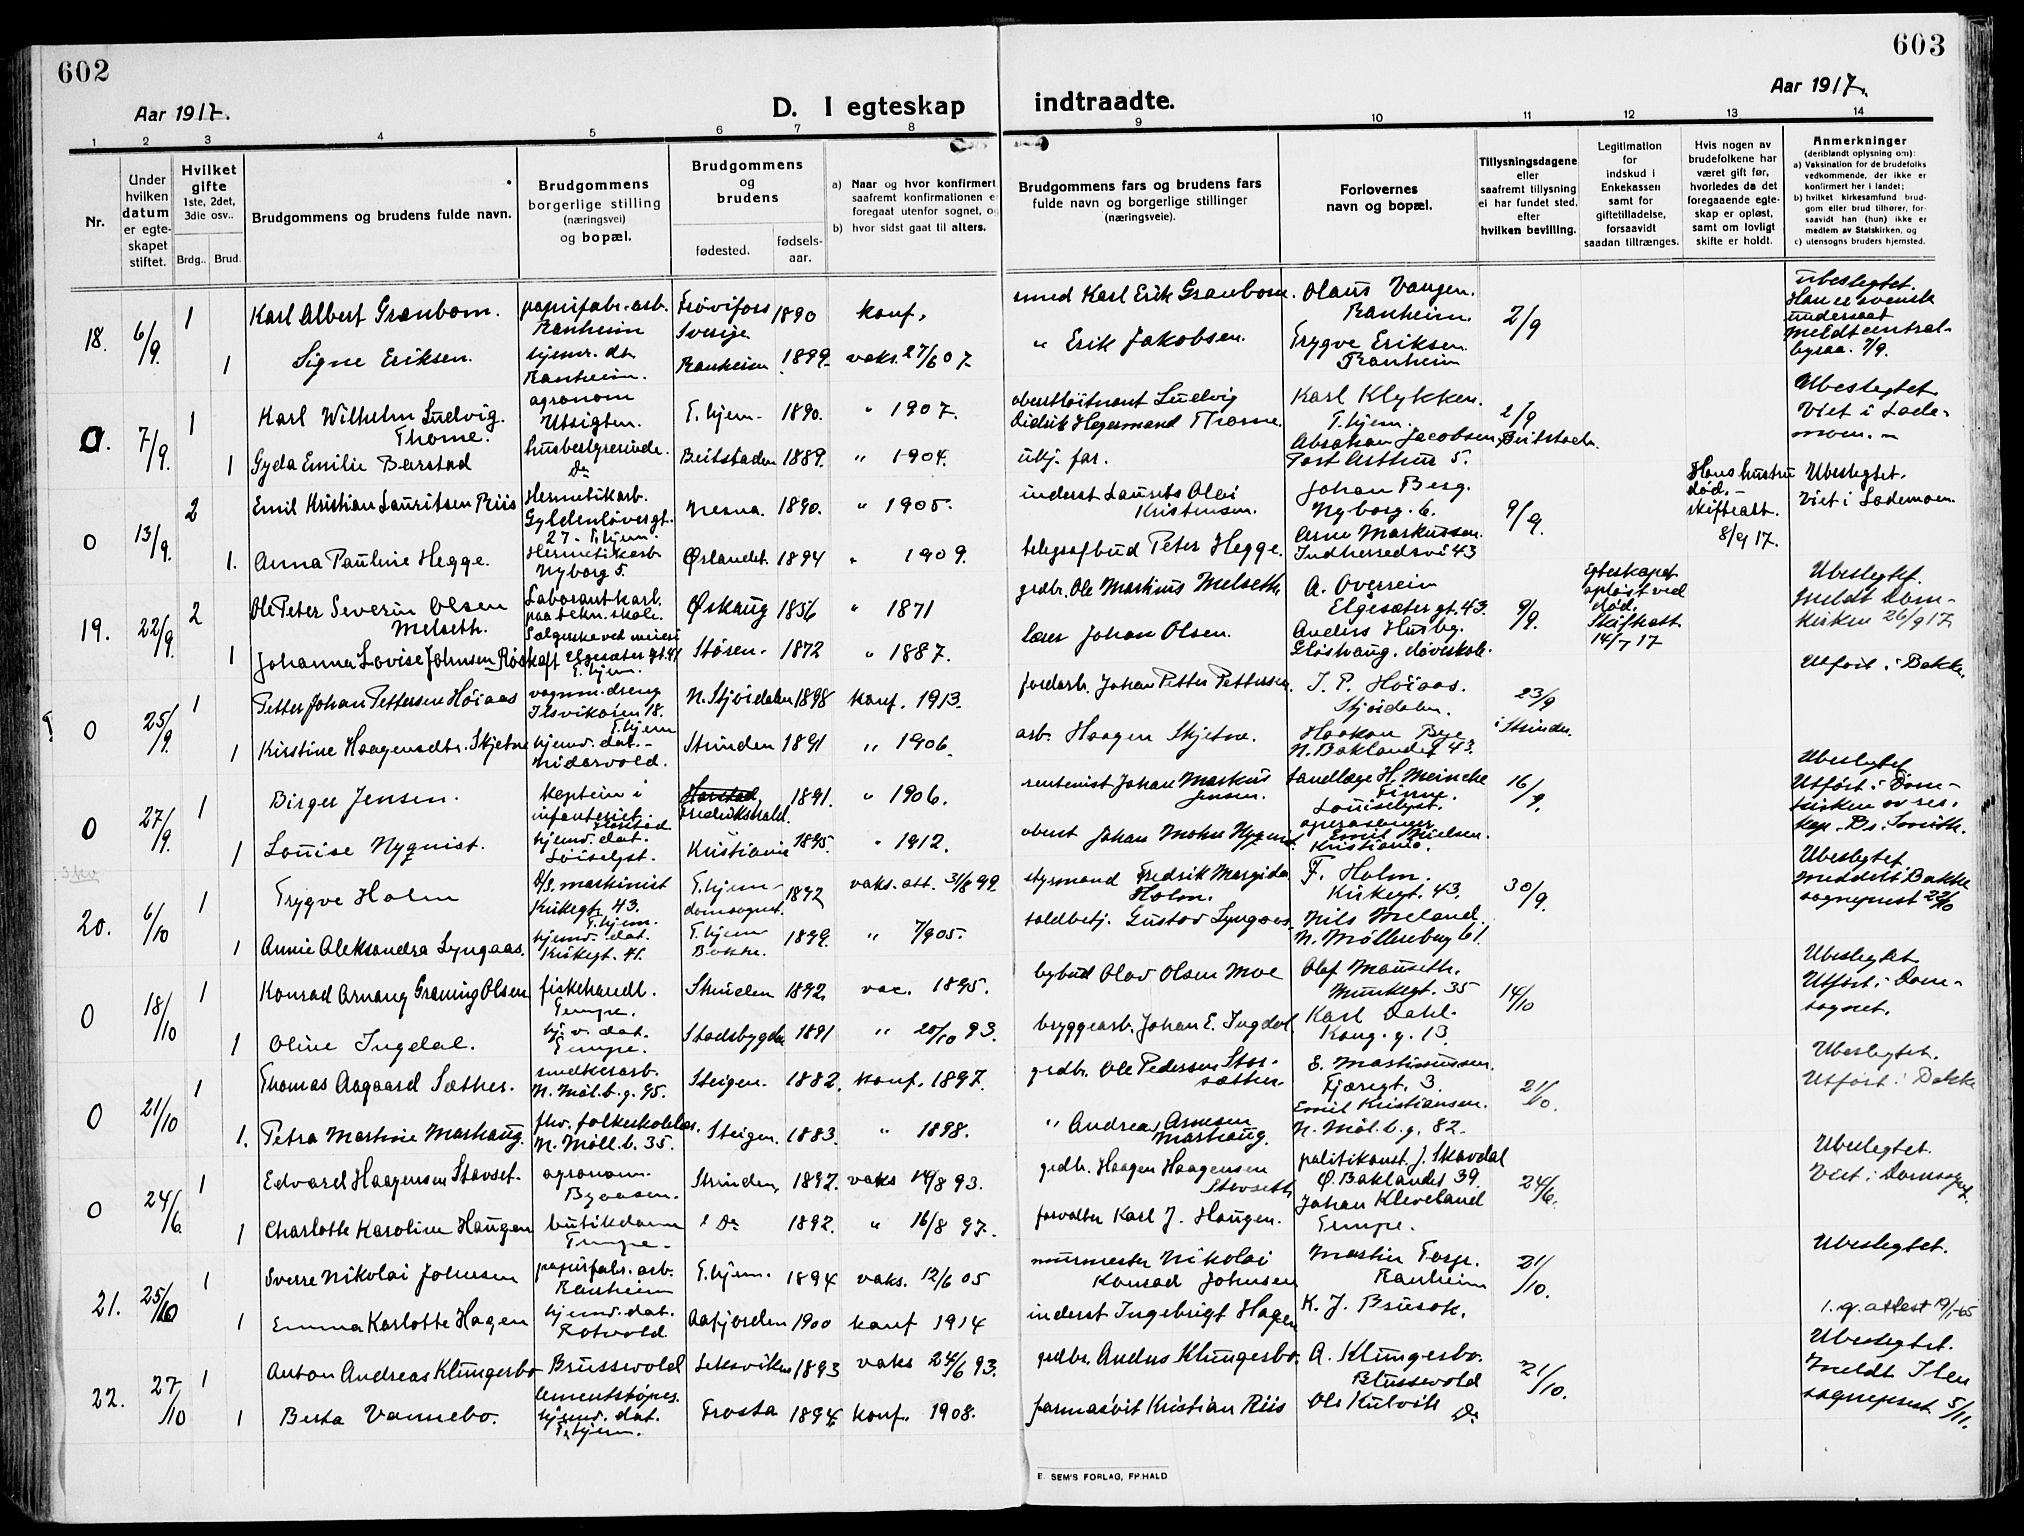 602
603
Aar 1917.
D. I egteskap
indtraadte.
Aar 1917.
1 2 3 4 5 6 7 8 9 10 11 12 13 14
Nr.
Under hvilken datum er egteskapet stiftet.
Hvilket gifte 1ste, 2det, 3die osv..
Brdg.. Brud.
Brudgommens og brudens fulde navn.
Brudgommens borgerlige stilling (næringsvei) og bopæl.
Brudgommens og brudens
fødested.
fødsels-aar.
a) Naar og hvor konfirmert, saafremt konfirmationen er foregaat utenfor sognet, og
b) hvor sidst gaat til alters.
Brudgommens fars og brudens fars fulde navn og borgerlige stillinger (næringsveie).
Forlovernes navn og bopæl.
Tillysningsdagene eller saafremt tillysning ei har fundet sted, efter hvilken bevilling.
Legitimation for indskud i Enkekassen samt for giftetilladelse, forsaavidt saadan tiltrænges.
Hvis nogen av brudefolkene har været gift før, hvorledes da det foregaaende egteskap er opløst, samt om lovligt skifte er holdt.
Anmerkninger
(deriblandt oplysning om):
a) Vaksination for de brudefolks vedkommende, der ikke er konfirmert her i landet;
b) hvilket kirkesamfund brudgom eller brud tilhører, forsaavidt han (hun) ikke er medlem av Statskirken, og
c) utensogns bruders hjemsted.
18. 6/9. 1 Karl Albert Granbom. papirfabr. arb. Ranheim Frövifors Sverige 1890 konf. smed Karl Erik Granbom. Olaus Vangen. Ranheim. 2/9 Ubeslegtet. Han er svensk undersaat meldt centralbyraa. 7/9.
1 Signe Eriksen. hjemv. dt Ranheim. Ranheim 1899. vaks. 27/6 07. " Erik Jakobsen. Trygve Eriksen. Ranheim
0. 7/9. 1 Karl Wilhelm Ludvig Thorne. agronom Utsigten. T.hjem. 1890. " 1907. oberstløitnant Ludvig Didrik Hegermand Thorne. Karl Klykken. T.hjem. 2/9 Beitstaden. Ubeslegtet Viet i Lademoen.
1 Gyda Emilie Beistad husbestyrerinde. Do Beitstaden 1889. " 1904. ukj. far. Absahan Jacobsen
0 13/9. 2 Emil Kristian Lauritsen Riis Hermetikarb. Gyldenløvesgt. 27. T.hjem. Nesna. 1890. " 1905. inderst Laurits Olai Kristensen. Johan Berg. Nyborg. 6. 9/9. Hans hustru død. skifteatt. 8/9 17. Ubeslegtet. Viet i Lademoen.
1. Anna Pauline Hegge. Hermetikarb. Nyborg 5. Ørlandet. 1894 " 1909. telegrafbud Peter Hegge. Arne Markussen. Indherredsvei 43
19. 22/9. 2 Ole Peter Severin Olsen Melseth. Laborantkarb. paa tekn. skole. Øskaug 1856 " 1871 grdbr. Ole Martinus Melseth. A. Overrein Elgesætergt. 43. 9/9. Egteskapet opløst ved død. Skifteatt. 14/7 17 Ubeslegtet. Meldt Domkirken 26/9 17.
1 Johanna Lovise Johnsen Røskaft Sælgerske ved meieri Elgesætergt. 41 T.hjem. Støren. 1872 " 1887. lærer Johan Olsen. Anders Husby. Gløshaug. døveskole.
0 25/9. 1 Petter Johan Pettersen Høiaas vognm. dreng Ilsvikøren 18. T.hjem N. Stjørdalen 1898 konf. 1913. jordarb. Johan Petter Pettersen. J. P. Høiaas. Stjørdalen. 23/9 i Strinden. Utført i Bakke.
1 Kirstine Haagensdtr. Skjetne hjemv. dat. Nidarvold. Strinden 1891 " 1906. arb. Haagen Skjetne. Haakon Bye N. Baklandet 43.
0 27/9. 1 Birger Jensen. kaptein i infanteriet. Harstad Fredrikshald. 1891. " 1906. rentenist Johan Markus Jensen. tandlæge H. Meincke Finne. Louiselyst. 16/9. Ubeslegtet Utført i Domkirken av res. kap. Dr. Smith.
1 Louise Nyquist. hjemv. dat. Loiselyst. Kristiania 1895. " 1912. oberst Johan Mohr Nyquist. operasanger Emil Nielsen. Kristiania.
20. 6/10 1 Trygve Holm D/S. maskinist Kirkegt. 43. T.hjem. T.hjem domsognet. 1892 vaks. att. 31/8 99. styrmand Fredrik Margido Holm. F. Holm. Kirkegt. 43. 30/9. Ubeslegtet. Meddelt Bakke sognepræst 22/10
1 Annie Aleksandra Lyngaas. hjemv. dat. Kirkegt. 41. T.hjem Bakke. 1899. " 7/9 05. toldbetj. Gustav Lyngaas. Nils Meland. N. Møllenberg 61.
0 18/10 1 Konrad Arnany Graning Olsen fiskehandl. Tempe. Strinden 1892 vac. 1895. bybud Olav Olsen Moe Olaf Mauseth. Munkegt. 35 14/10 Ubeslegtet Utført i Domsognet.
1 Oline Ingdal. hj. v. dat. Tempe. Stadsbygden 1891 " 20/10 93. bryggearb. Johan E. Ingdal Karl Dahl. Kong. g. 13.
0 21/10 1 Thomas Aagaard Sæther. snedkerarb. N. Møl. b. g. 95. Steigen. 1882. konf. 1897. grdbr. Ole Pedersen Storsæther E. Martinussen. Fjæregt. 3. 21/10. Ubeslegtet. Utført i Bakke
1. Petra Martine Marhaug. fhv. folkeskolelær. N. Møll. b. 35. Steigen. 1883. " 1898. " Andreas Arnesen Marhaug. Emil Kristiansen. N. Møl. b. g. 82.
0 24/6 1 Edvard Haagensen Stavset. agronom. Byaasen. Strinden, 1892. vaks 14/8 93. grdbr. Haagen Haagensen Stavseth politikonst. J. Skavdal Ø. Baklandet 39. 24/6. Ubeslegtet. Viet i Domsognet.
1 Charlotte Karoline Haugen butikdame Tempe. Do 1892. " 16/8 97. forvalter Karl J. Haugen. Johan Kleveland Tempe.
21. 25/10 1 Sverre Nikolai Johnsen papirfabr. arb. Ranheim T.hjem. 1894 vaks. 12/6 05 murmester Nikolai Konrad Johnsen Martin Torp. Ranheim 21/10. Ubeslegtet.
1 Emma Karlotte Hagen hjemv. dat. Rotvold. Aafjorden 1900 konf 1914 inderst Ingebrigt Hagen K. J. Brusok. 1. g. attest 19/1-65
22. 27/10 1 Anton Andreas Klungerbo Brusevold cementstøper. Leksviken 1893 vaks 24/6 93. grdbr. Anders Klungerbo. A. Klungerbo. Blussevold 21/10. Ubeslegtet. Meldt Ilen sogneprest 5/11.
1 Berta Vannebo. hjemv. dat. T.hjem. Frosta 1894 konf. 1908. farmasøit Kristian Riis Ole Kulvik Do
E. SEM'S FORLAG, FR.HALD